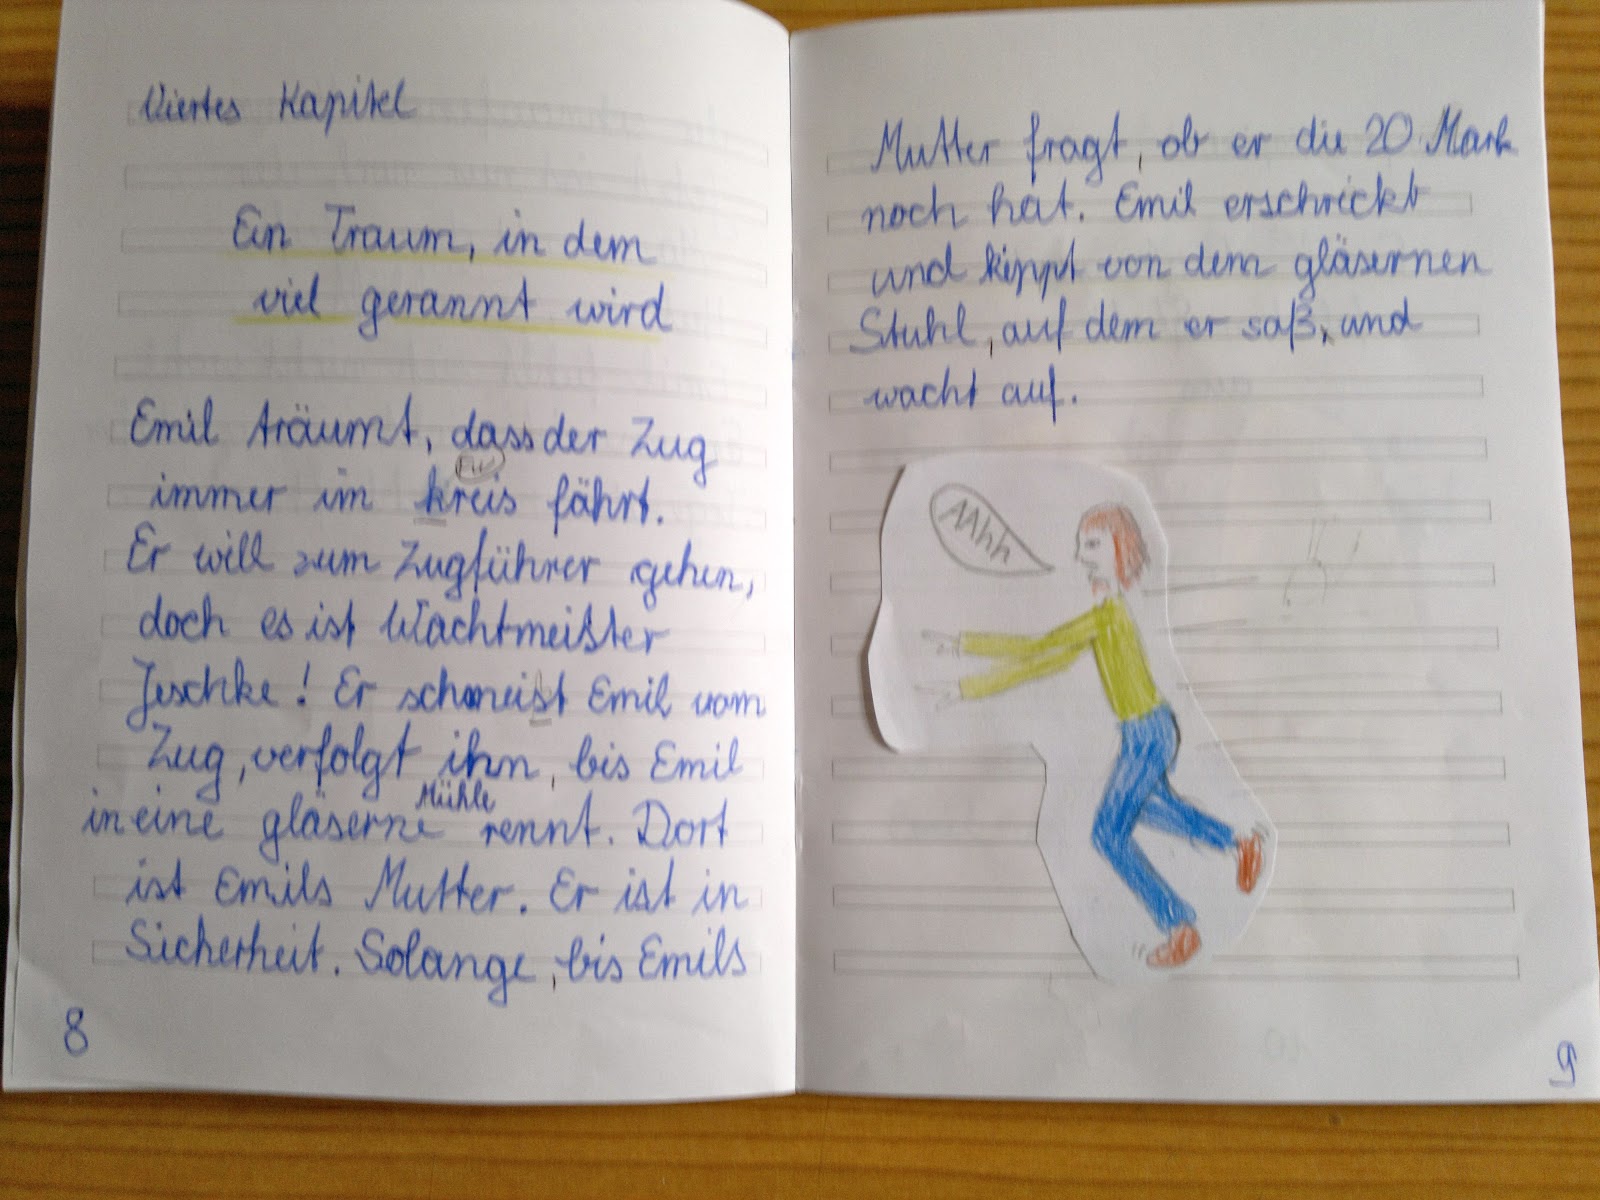 Viertes Kapitel
Ein Traum, in dem
viel gerannt wird
Emil träumt, dass der Zug
immer im kreis fährt.
Er will zum Zugführer gehen,
doch es ist Wachtmeister
Jeschke! Er schmeist Emil vom
Zug, verfolgt ihn, bis Emil
in eine gläserne Mühle rennt. Dort
ist Emils Mutter. Er ist in
Sicherheit. Solange, bis Emils
8
Mutter fragt, ob er die 20 Mark
noch hat. Emil erschrickt
und kippt von dem gläsernen
Stuhl, auf dem er saß, und
wacht auf.
AAhh
9